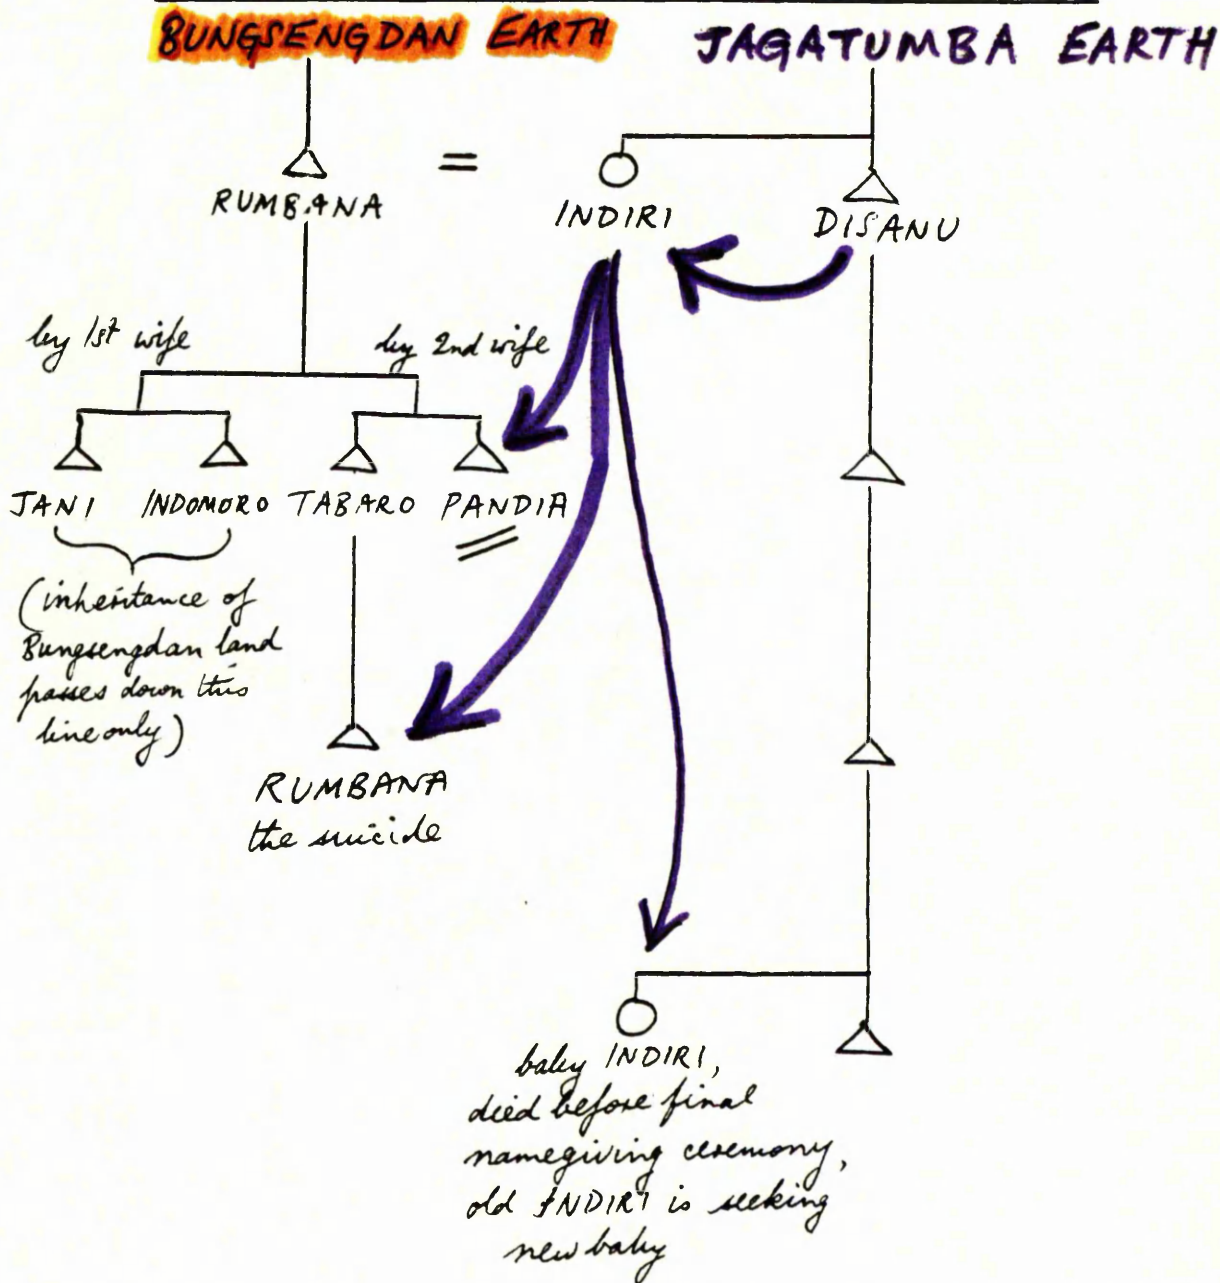 BUNGSENGDAN EARTH
JAGATUMBA EARTH
=
RUMBANA
INDIRI
DISANU
by 1st wife
by 2nd wife
JANI
INDOMORO
TABARO
PANDIA
=
(inheritance of
Bungsengdan land
passes down this
line only)
RUMBANA
the suicide
baby INDIRI,
died before final
namegiving ceremony,
old INDIRI is seeking
new baby